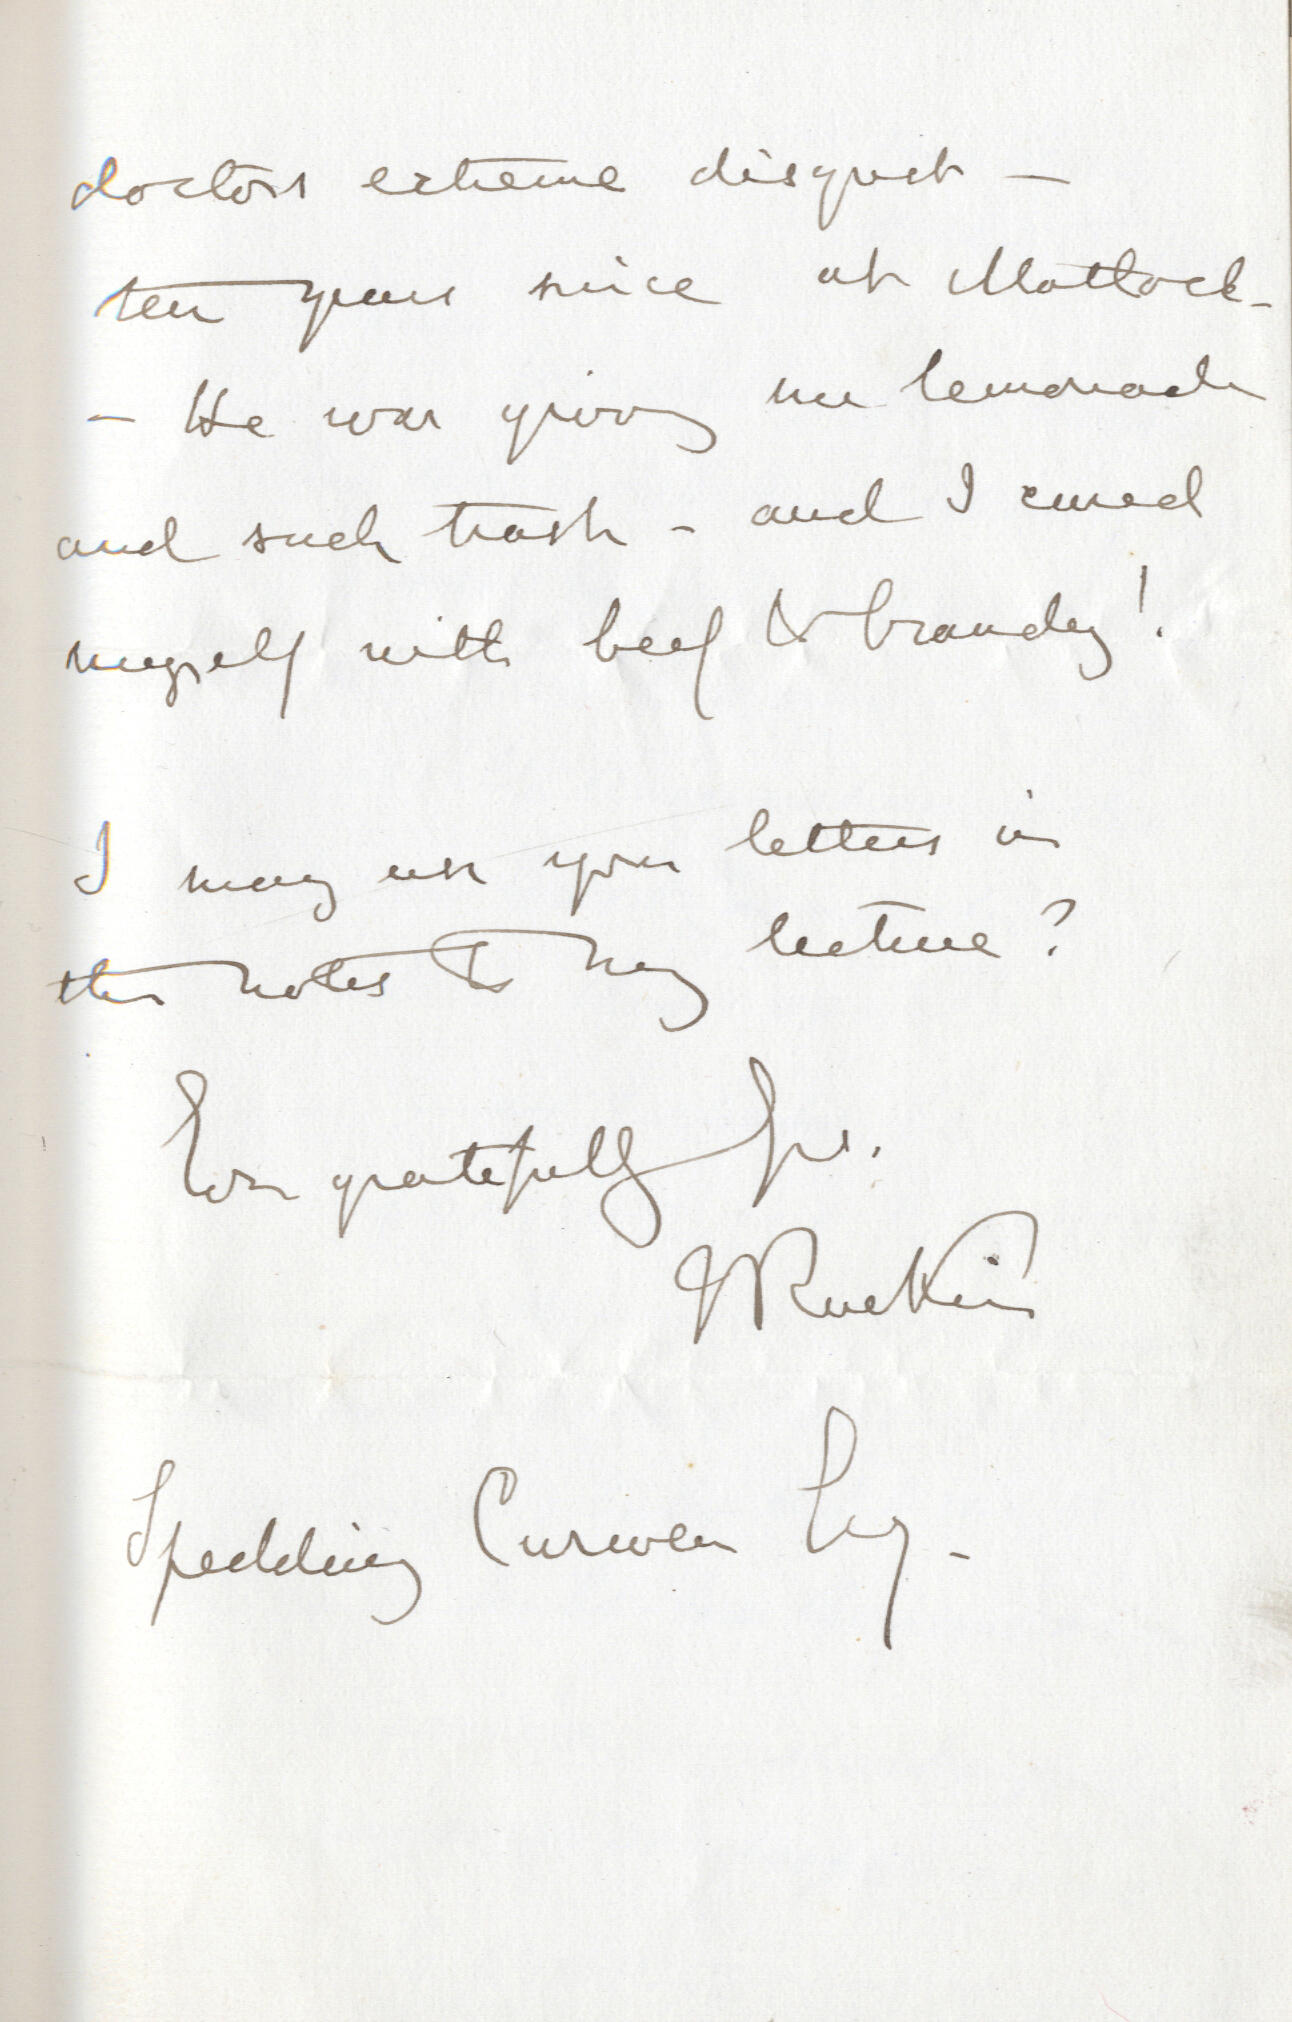 doctors extreme disgust —
ten years since at Matlock -
— He was giving me lemonade
and such trash - and I cured
myself with beef & brandy!
I may use your letters in
the notes to my lecture?
Ever gratefully Yrs.
J Ruskin
Spedding Curwen Esq -